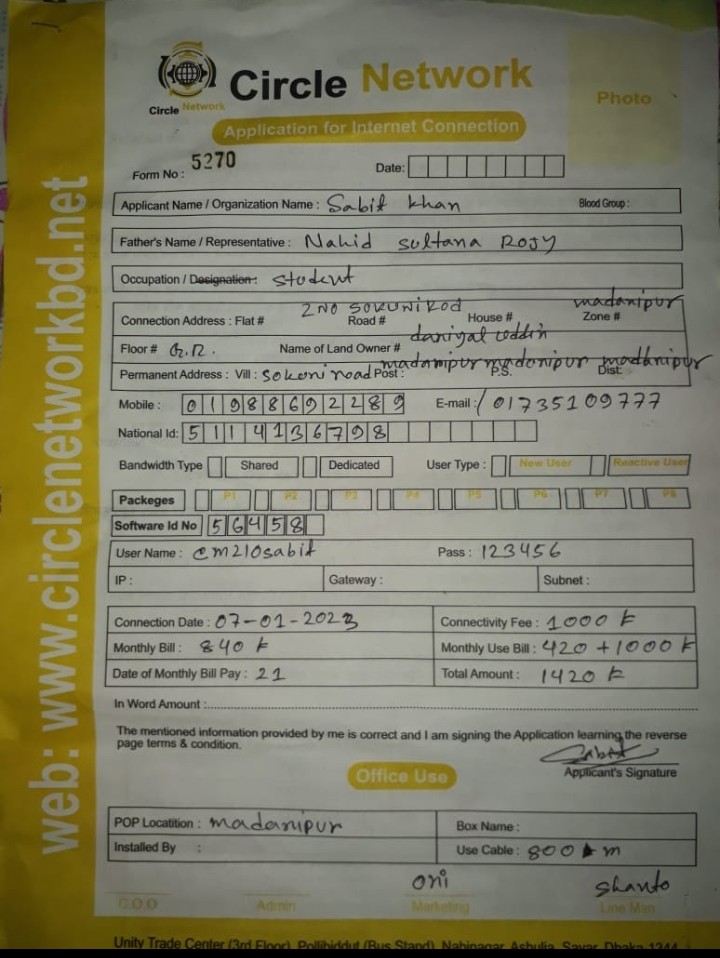 Circle Network
Circle Network
Photo
Application for Internet Connection
Form No : 5270 Date:
Applicant Name / Organization Name : Sabit khan Blood Group :
Father's Name / Representative : Nahid sultana Rojy
Occupation / Designation: Student
Connection Address : Flat # 2 NO SOKUNI ROd Road # House # madanipur Zone #
Floor # G.R. Name of Land Owner # daniyal uddin
Permanent Address : Vill : Sokuni road Post : madanipur P.S. madanipur Dist: madanipur
Mobile : 01988692289 E-mail : / 01735109777
National Id: 5114136798
Bandwidth Type Shared Dedicated User Type : New User Reactive User
Packeges P1 P2 P3 P4 P5 P6 P7 P8
Software Id No 56458
User Name : cm210sabit Pass : 123456
IP : Gateway : Subnet :
Connection Date : 07-01-2023 Connectivity Fee : 1000 ৳
Monthly Bill : 840 ৳ Monthly Use Bill : 420 + 1000 ৳
Date of Monthly Bill Pay : 21 Total Amount : 1420 ৳
In Word Amount :
The mentioned information provided by me is correct and I am signing the Application learning the reverse
page terms & condition.
Sabit
Applicant's Signature
Office Use
POP Locatition : madanipur Box Name :
Installed By : Use Cable : 800 m
Oni Shanto
C.O.O Admin Marketing Line Man
Unity Trade Center (3rd Floor), Pollibiddut (Bus Stand), Nabinagar, Ashulia, Savar, Dhaka-1344
web: www.circlenetworkbd.net